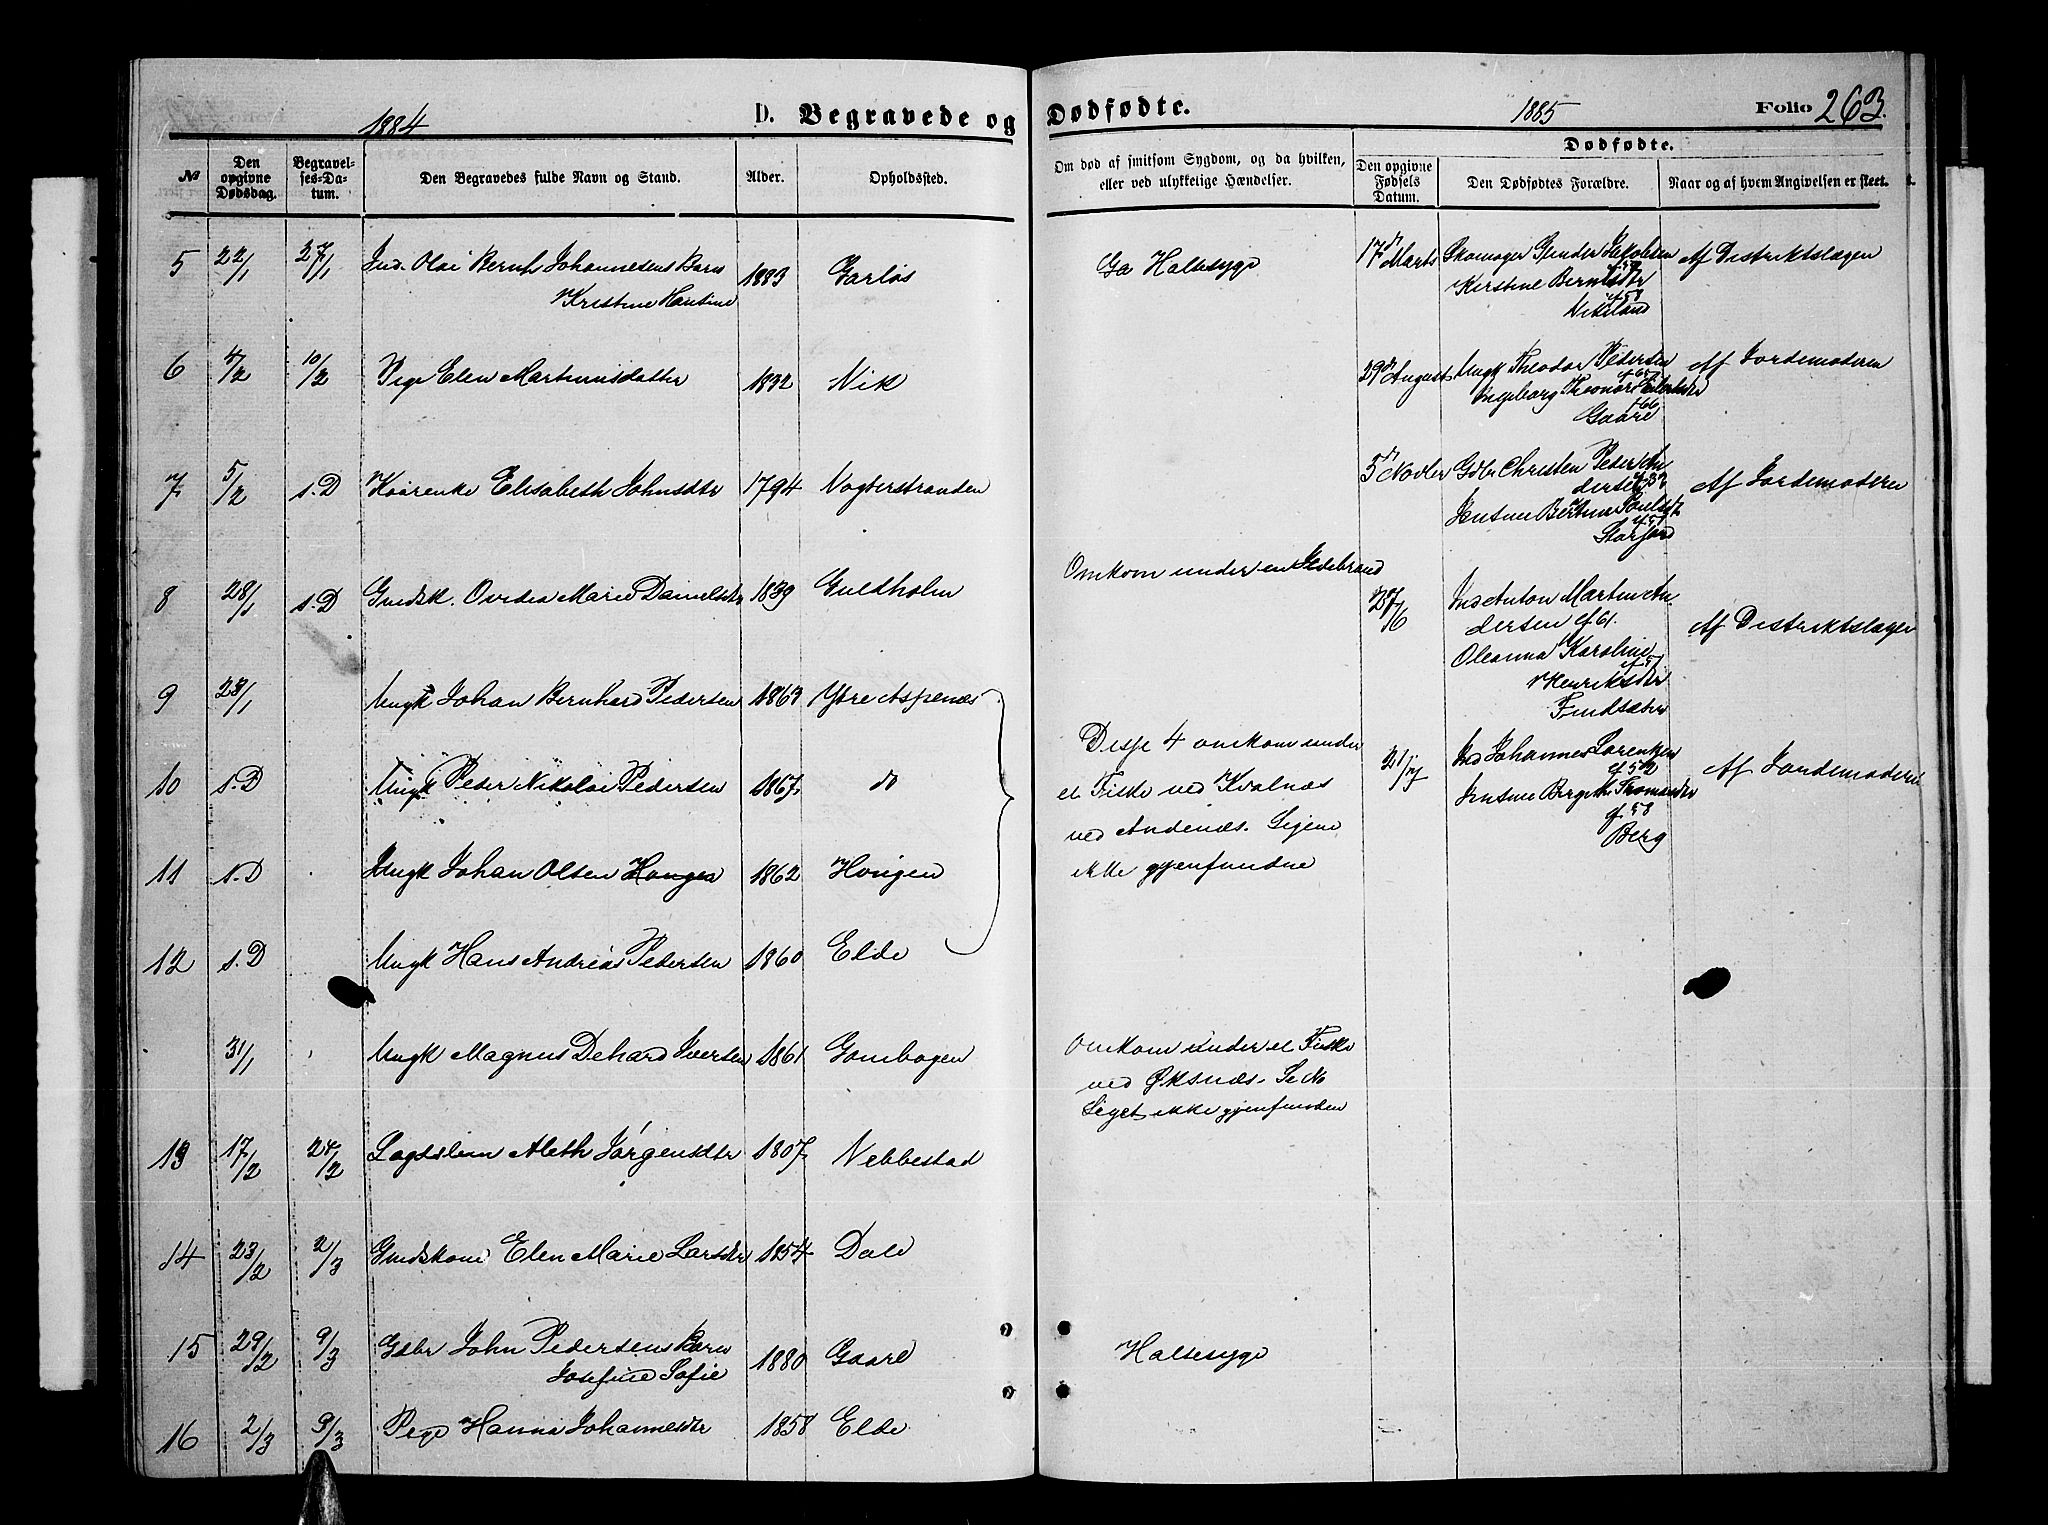 1884 D. Begravede og
№ Den opgivne Dødsdag. Begravelses-Datum. Den Begravedes fulde Navn og Stand. Alder. Opholdssted.
5 22/1 27/1 Ind. Olai Bernh Johannesens Barn
Kristine Hansine 1883 Garløs
6 4/2 10/2 Pige Elen Martinusdatter 1832 Vik
7 5/2 s.D Kaarenke Elisabeth Johnsdtr 1794 Vogterstranden
8 28/1 s.D Gmdsk. Ovidea Marie Danielsdtr 1839 Guldholm
9 28/1 Ungk Johan Bernhard Pedersen 1863 Ytre Aspenæs
10 s.D Ungk Peder Nikolai Pedersen 1867 do
11 s.D Ungk Johan Olsen 1862 Hongen
12 s.D Ungk Hans Andreas Pedersen 1860 Elde
31/1 Ungk Magnus Dehard Iversen 1861 Gombogen
13 17/2 24/2 Lægdslem Aleth Jørgensdtr 1807 Nebbestad
14 23/2 2/3 Gmdskone Elen Marie Larsdtr 1854 Dale
15 29/2 9/3 Gdbr John Pedersens Barn
Josefine Sofie 1880 Gaare
16 2/3 9/3 Pige Hanna Johannesdtr 1858 Elde
Dødfødte. 1885 Folio 263.
Dødfødte.
Om død af smitsom Sygdom, og da hvilken,
eller ved ulykkelige Hændelser.
Den opgivne Fødsels Datum. Den Dødfødtes Forældre. Naar og af hvem Angivelsen er skeet.
Ga Halsesyge
Omkom under en Ildebrand
Disse 4 omkom under
et Fiske ved Kvalnæs
ved Andenæs. Ligene
ikke gjenfundne
Omkom under et Fiske
ved Øksnæs. Se No
Liget ikke gjenfunden
Halsesyge
17d Marts Skomager Peder Jakobsen
Kirstine Berntsdtr
f 58
Viteland
Af Distriktslægen
29d August Ungk Theodor Pedersen
Ingeborg
f 66
Gaare
Af Jordemoderen
5d Novbr Gdbr Christen Peder An
dersen
Jentine Bertine Poulsdtr
Storjord
Af Jordemoderen
27/6 Ind Anton Martin An
dersen f 61.
Oleanna Karoline
Henriksdtr
Findsæter
Af Distriktslægen
21/7 Ind Johannes Lorentzen
f 52
Jentine Bergith Thomasdtr
f. 58
Berg
Af Jordemoderen